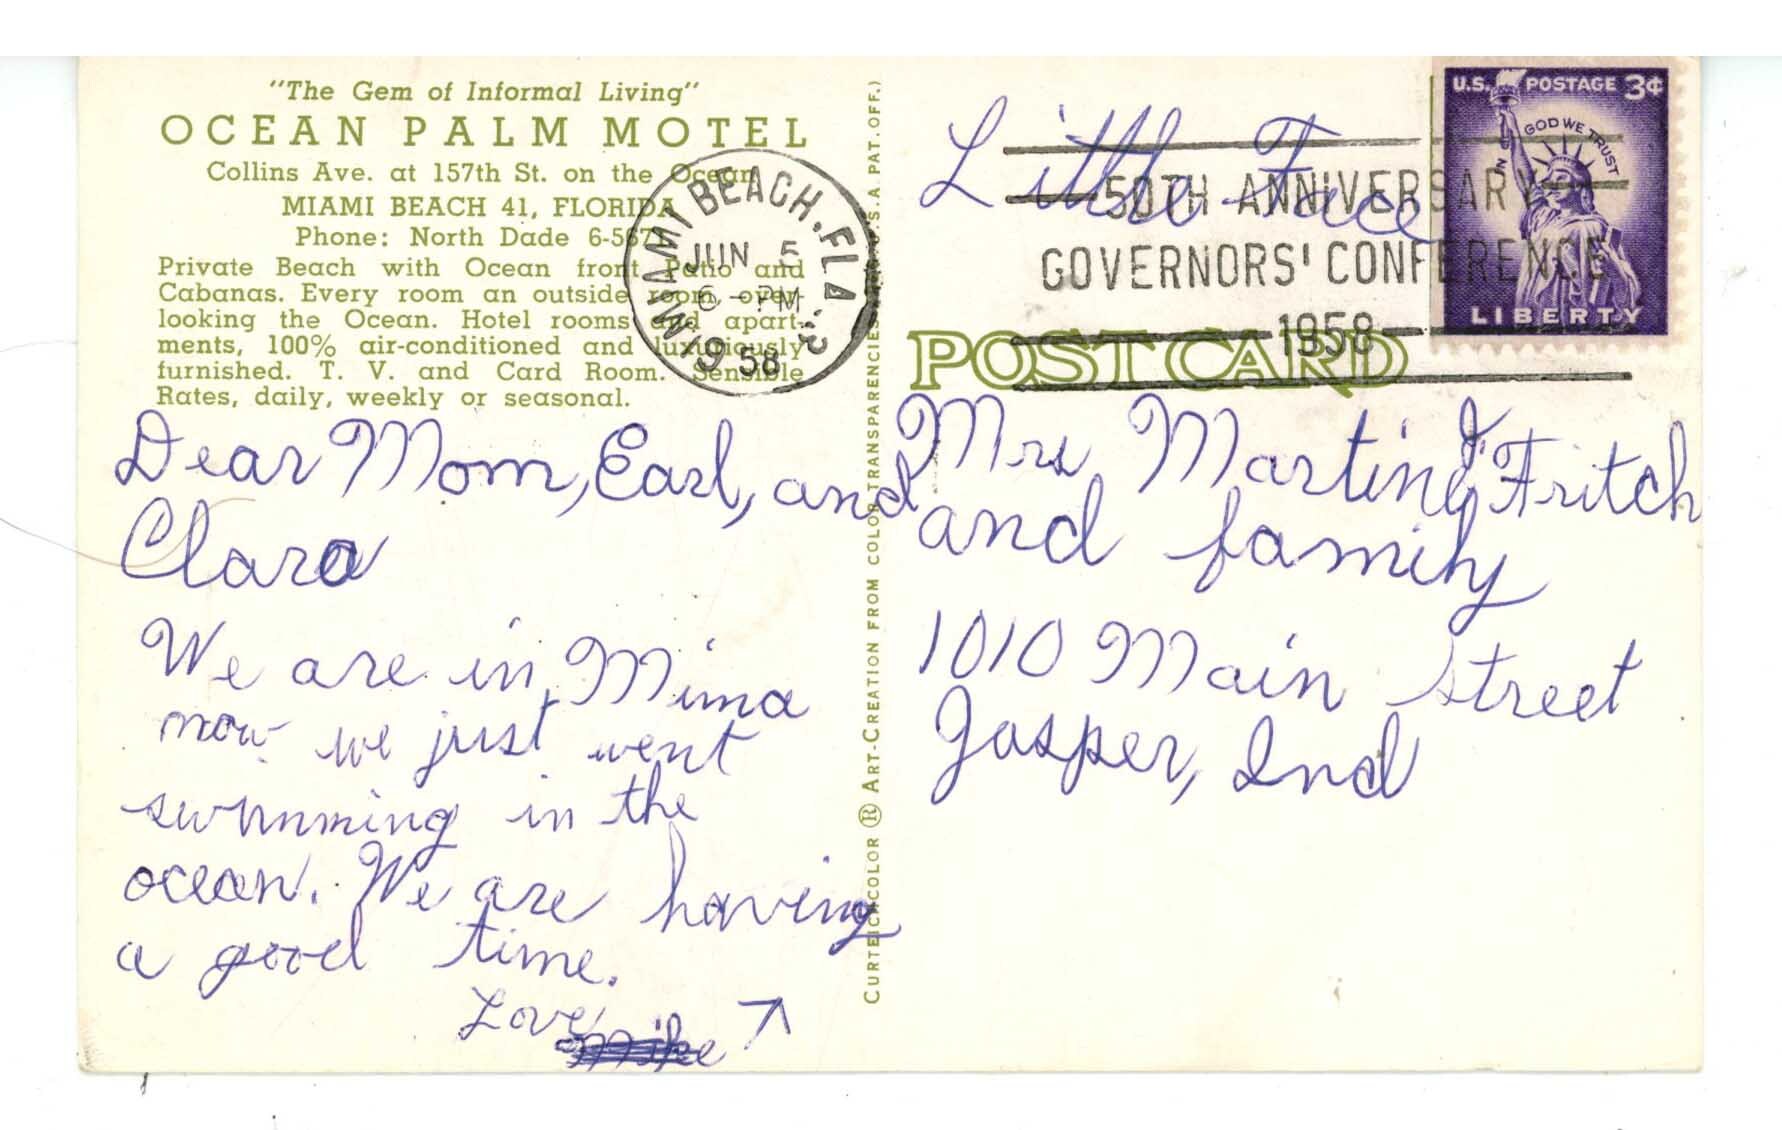 "The Gem of Informal Living"
OCEAN PALM MOTEL
Collins Ave. at 157th St. on the Ocean
MIAMI BEACH 41, FLORIDA
Phone: North Dade 6-5671
Private Beach with Ocean front Patio and
Cabanas. Every room an outside room, over-
looking the Ocean. Hotel rooms and apart-
ments, 100% air-conditioned and luxuriously
furnished. T. V. and Card Room. Sensible
Rates, daily, weekly or seasonal.
MIAMI BEACH, FLA.
JUN 5
6 - PM
1958
Dear Mom, Earl, and
Clara
We are in Mima
now we just went
swimming in the
ocean. We are having
a good time.
Love
Mike
CURTEICHCOLOR ® ART-CREATION FROM COLOR TRANSPARENCIES U.S.A. PAT. OFF.)
Little Face
50TH ANNIVERSARY
GOVERNORS' CONFERENCE
1958
U.S. POSTAGE 3¢
IN GOD WE TRUST
LIBERTY
POST CARD
Mrs Martin J. Fritch
and family
1010 Main Street
Jasper, Ind